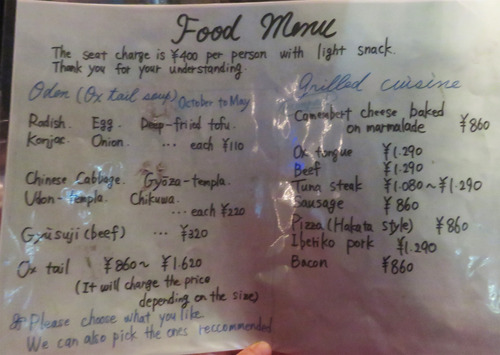 Food Menu
The seat charge is ¥400 per person with light snack.
Thank you for your understanding.
Oden (Ox tail soup) October to May
Radish. Egg. Deep-fried tofu.
Konjac. Onion. ... each ¥110
Chinese Cabbage. Gyōza-templa.
Udon-templa. Chikuwa.
... each ¥220
Gyūsuji (beef) ... ¥320
Ox tail ¥860~ ¥1.620
(It will charge the price
depending on the size)
Please choose what you like.
We can also pick the ones reccommended
Grilled cuisine
Camembert cheese baked
on marmalade ¥860
Ox tongue ¥1.290
Beef ¥1.290
Tuna steak ¥1.080~¥1.290
Sausage ¥860
Pizza (Hakata style) ¥860
Iberiko pork ¥1.290
Bacon ¥860